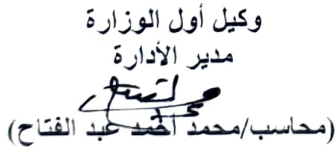 وكيل أول الوزارة
مدير الأدارة
(محاسب/محمد أحمد عبد الفتاح)